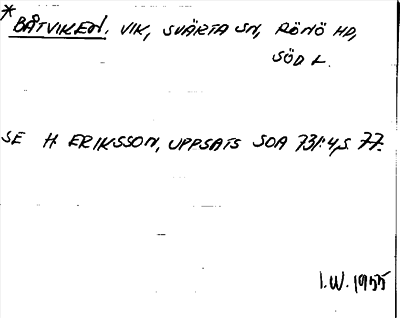 *BÅTVIKEN, VIK, SVÄRTA SN, RÖNÖ HD,
SÖD L.
SE H. ERIKSSON, UPPSATS SOA 731:4, S. 77.
I.W. 1955